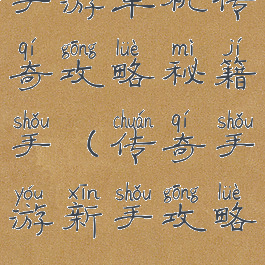 手游单机传
qí gōng lüè mì jí
奇攻略秘籍
shǒu chuán qí shǒu
手（传奇手
yóu xīn shǒu gōng lüè
游新手攻略